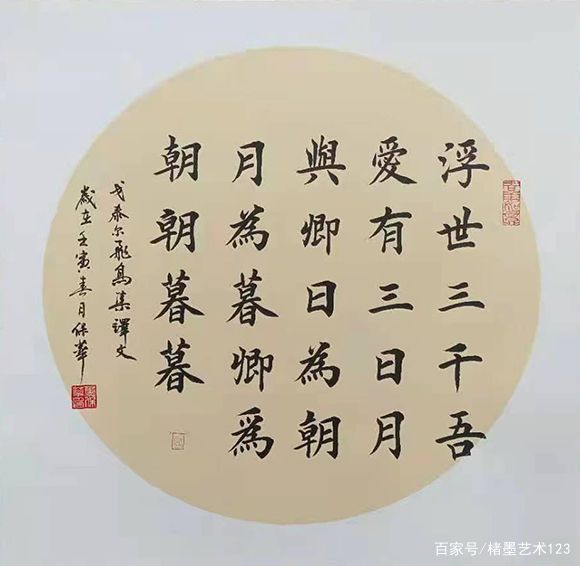 浮世三千吾
愛有三日月
與卿日為朝
月為暮卿爲
朝朝暮暮
戈泰尔飛鳥集譯文
歲在壬寅春月保華
百家号/楮墨艺术123